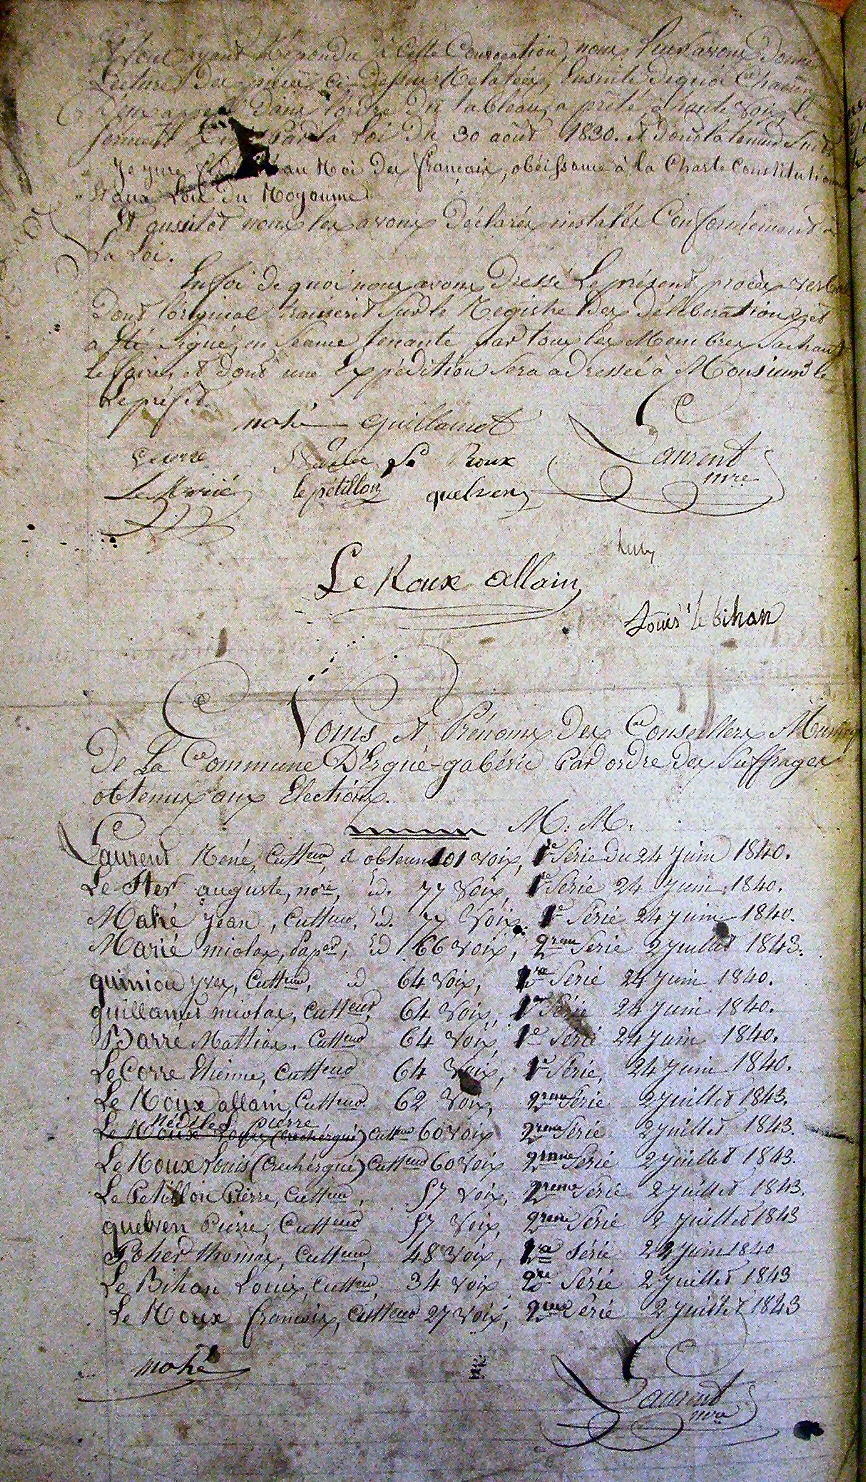 ayant Répondu à Cette Convocation, nous leur avons Donné
Lecture des pièces ci-dessus Relatées, Ensuite de quoi Chacun
d'eux appelé dans l'ordre du tableau, a prêté à haute voix Le
serment par la Loi du 30 août 1830. et dont la teneur Suit
Je jure au Roi des français, obéissance à la Charte Constitution
Et aux Lois du Royaume.
Et aussitôt nous les avons Déclarés installés Conformément à
La Loi.
En foi De quoi nous avons Dressé Le présent procès verbal
Dont l'original transcrit Sur le Registre des délibérations, et
a été Signé en Séance tenante par tous les Membres Sachant
Le faire, et dont une Expédition Sera adressée à Monsieur le
Le préfet.
mahé Guillamot
Barré Le Roux Laurent
mre
Le Marié le pétillon quelven
Le Roux allain
Louis le bihan
Noms Et Prénoms Des Conseillers Munic
De La Commune D'Ergué-gabéric Par ordre des Suffrages
obtenus aux Elections.
M. M.
Laurent René, Cultteur, a obtenu 101 voix, 1re Série du 24 Juin 1840.
Le Ster auguste, nore, id. 77 Voix 1re Série 24 Juin, 1840.
Mahé jean, Cultteur, id. 77 Voix, 1re Série 24 Juin 1840.
Marié nicolas, Paper, id 66 voix, 2eme Série 2 juillet 1843.
quiniou yves, Cultteur, id 64 Voix, 1re Série 24 Juin 1840.
guillamot nicolas, Cultteur 64 Voix, 1re Série 24 Juin 1840.
Barré Mathias, Cultteur 64 Voix 1re Série 24 Juin 1840.
Le Corre Etienne, Cultteur 64 Voix, 1re Série, 24 Juin 1840.
Le Roux allain, Cultteur 62 Voix, 2eme Série 2 juillet 1843.
pierre
Le Roux Louis (Crechergué) Cultteur 60 Voix 2eme Série 2 juillet 1843
Le Roux Louis (Crechergué) Cultteur 60 Voix 2eme Série 2 juillet 1843.
Le Petillon Pierre, Cultteur, 57 voix, 2eme Série 2 juillet 1843.
quelven Pierre, Cultteur 57 Voix, 2eme Série 2 juillet 1843
Poher thomas, Cultteur, 48 Voix, 1re Série 24 Juin 1840
Le Bihan Louis, Cultteur, 34 voix 2me Série 2 juillet 1843
Le Roux françois, Cultteur 27 Voix, 2eme Série 2 juillet 1843
mahé
Laurent
mre